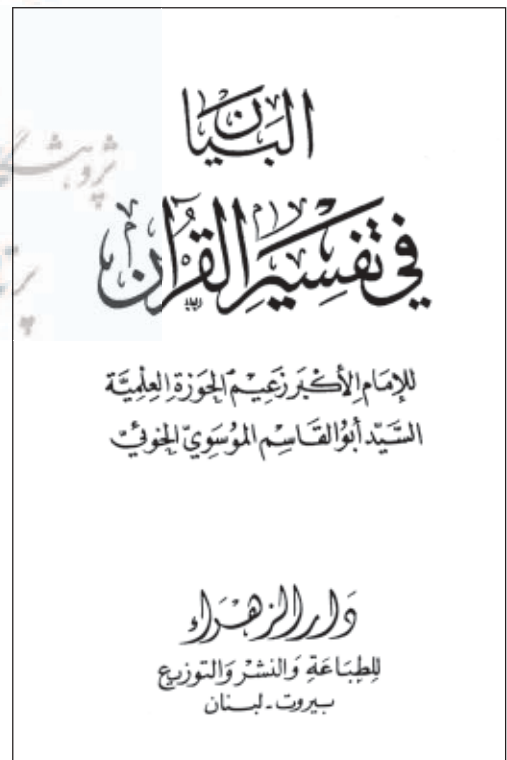 البيان
في تفسير القرآن
للإمام الأكبر زعيم الحوزة العلمية
السيد أبو القاسم الموسوي الخوئي
دار الزهراء
للطباعة والنشر والتوزيع
بيروت - لبنان